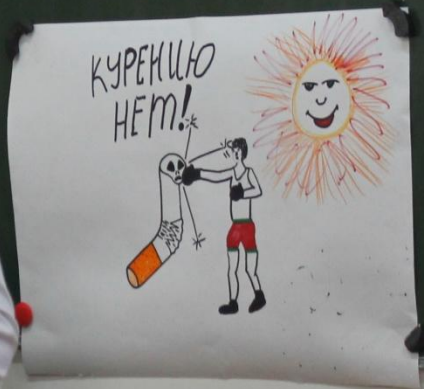 КУРЕНИЮ
НЕТ!